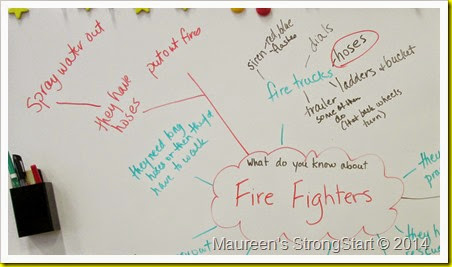 Spray water out
they have
hoses
put out fires
they need long
hoses or then they'd
have to walk
siren-red, blue
flashes
dials
hoses
fire trucks
ladders + bucket
trailer
some of them
do
(that back wheels
turn)
What do you know about
Fire Fighters
they
pra
they ha
rescue
out
Maureen's StrongStart © 2014